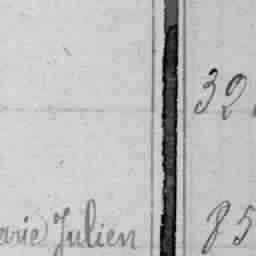 32
arie Julien 85